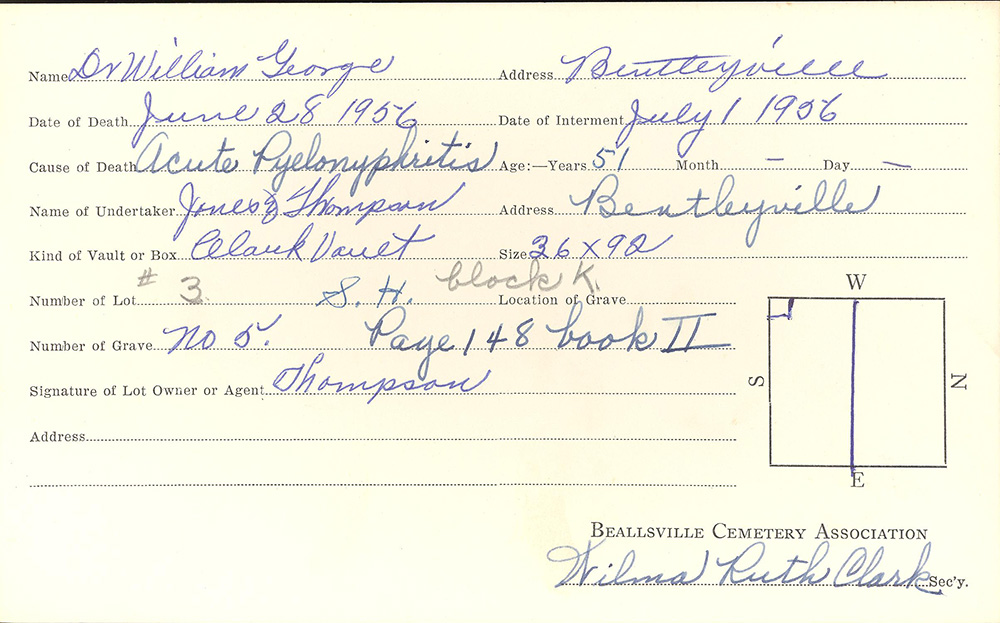 Name Dr William George Address Bentleyville
Date of Death June 28 1956 Date of Interment July 1 1956
Cause of Death Acute Pyelonyphritis Age:—Years 51 Month – Day –
Name of Undertaker Jones & Thompson Address Bentleyville
Kind of Vault or Box Clark Vault Size 36 x 92
Number of Lot # 3 S. H. block K. Location of Grave
W
Number of Grave No 5. Page 148 book II
Signature of Lot Owner or Agent Thompson
S N
Address
E
BEALLSVILLE CEMETERY ASSOCIATION
Wilma Ruth Clark Sec'y.